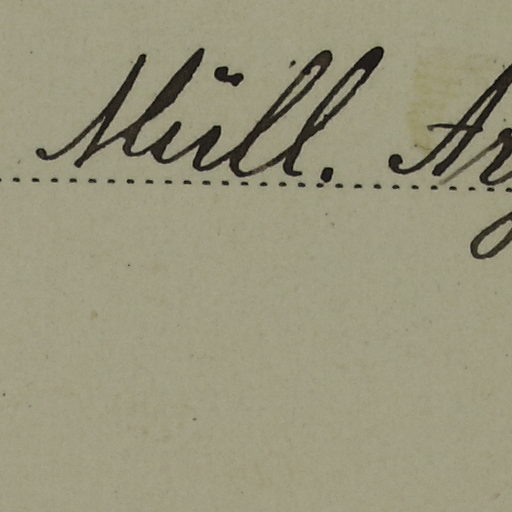 Müll. Arg